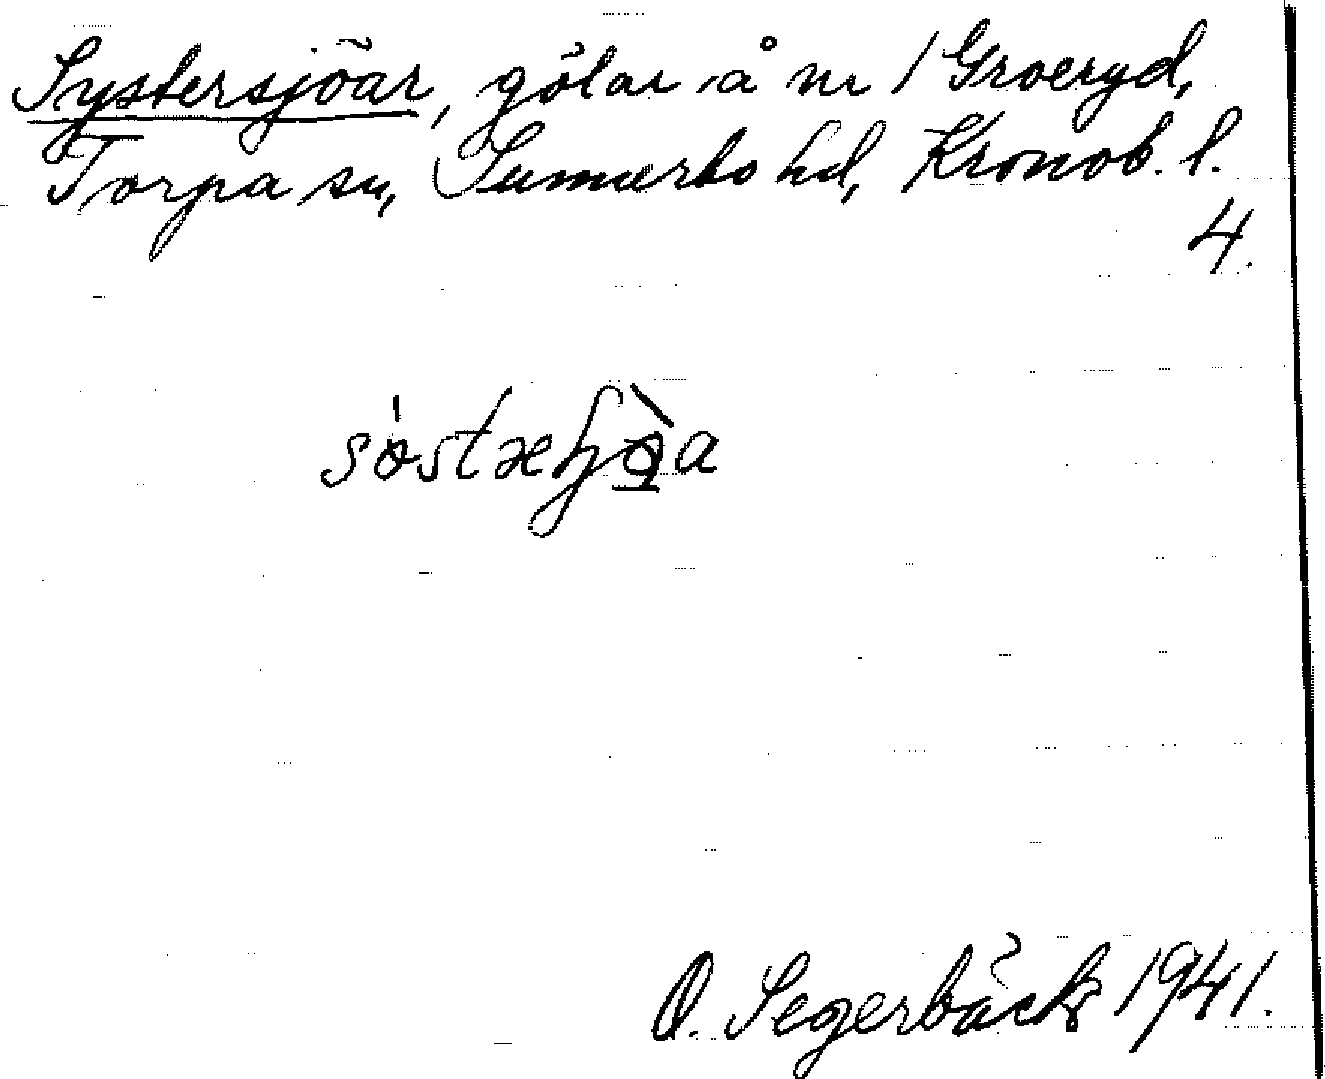 Systersjöar, gölar å nr 1 Groeryd,
Torpa sn, Sunnerbo hd, Kronob. l.
4.
O. Segerbäck 1941.